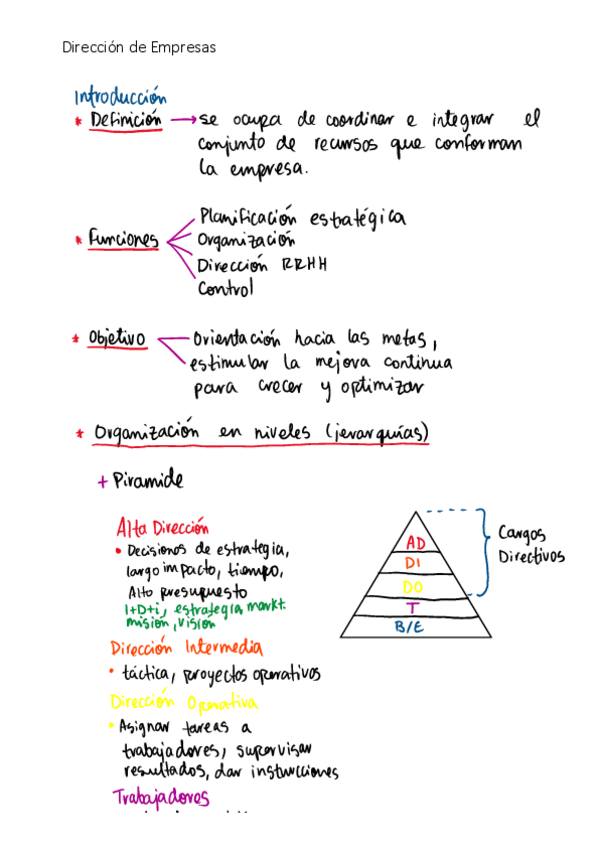 Dirección de Empresas
Introducción
* Definición → se ocupa de coordinar e integrar el
conjunto de recursos que conforman
la empresa.
* Funciones
Planificación estratégica
Organización
Dirección RRHH
Control
* Objetivo
Orientación hacia las metas,
estimular la mejora continua
para crecer y optimizar
* Organización en niveles (jerarquías)
+ Piramide
Alta Dirección
• Decisiones de estrategia,
largo impacto, tiempo,
Alto presupuesto
I+D+i, estrategia markt.
misión, visión
Dirección Intermedia
• táctica, proyectos operativos
Dirección Operativa
• Asignar tareas a
trabajadores, supervisar
resultados, dar instrucciones
Trabajadores
AD
DI
DO
T
B/E
Cargos
Directivos